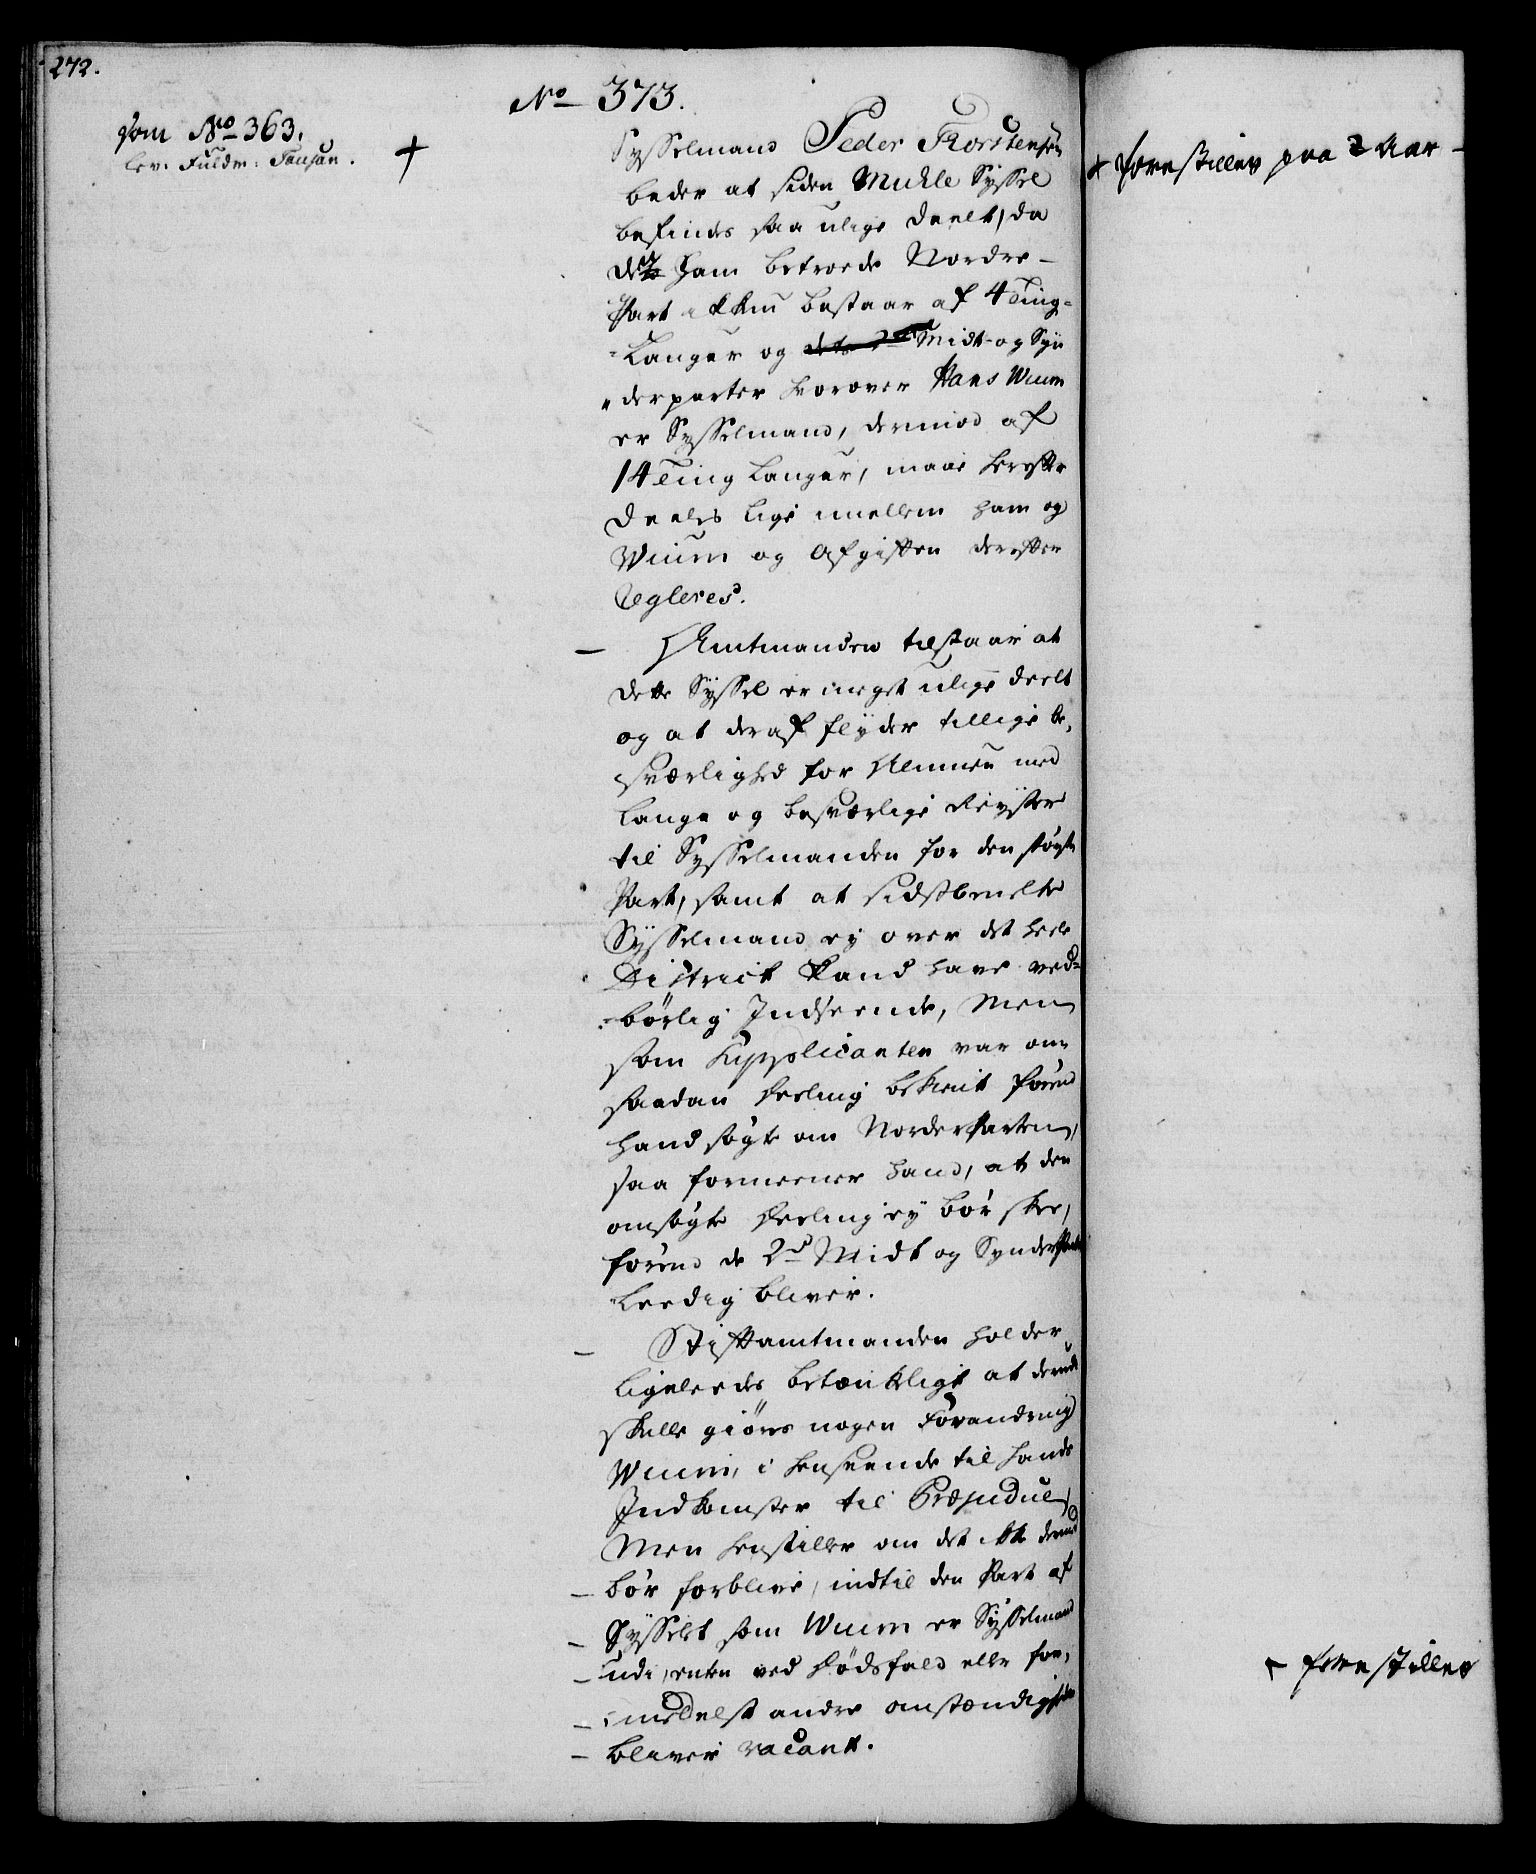 272.
No 373.
som No 363.
lev. Fuldm: Tausan.
+
Sysselmand Peder Thorstensen
beder at siden Muhle Syssel
befindes saa ulige deelt, da
den ham betroede Nordre-
Part ikkun bestaar af 4 Ting-
-Lauger og Midt- og Syn
derparter hvorover Hans Wium
er Sysselmand, derimod af
14 Ting Lauger, maae herefter
deeles lige imellem ham og
Wium og Afgiften derefter
Regleres.
— Amtmanden tilstaar at
dette Syssel er meget ulige deelt
og at deraf flyder tillige be,
sværlighed for Almuen med
lange og besværlige Reyser
til Sysselmanden for den støvste
Part, samt at sidstbemelte
Sysselmand ey over det heele
District kand have ved-
-børlig Indseende, Men
som Supplicanten var om
saadan Deeling bekient førend
hand søgte om Norderparten,
saa formeener hand, at den
omsøgte Deeling ey bør skee,
førend de 2de Midt og Synderparter
leedig bliver.
— Stiftamtmanden holder
ligeleedes betænkeligt at derudi
skulle giøres nogen Forandring
Wium, i henseende til hands
Indkomster til Præjudice,
Men henstiller om det ikke derved
— bør forblive, indtil den Part af
— Sysselet som Wium er Sysselmand
— udi, enten ved Dødsfald eller for,
— medelst andre omstændigheder
— bliver vacant.
+ forestilles paa 2 Aar —
— forestilles